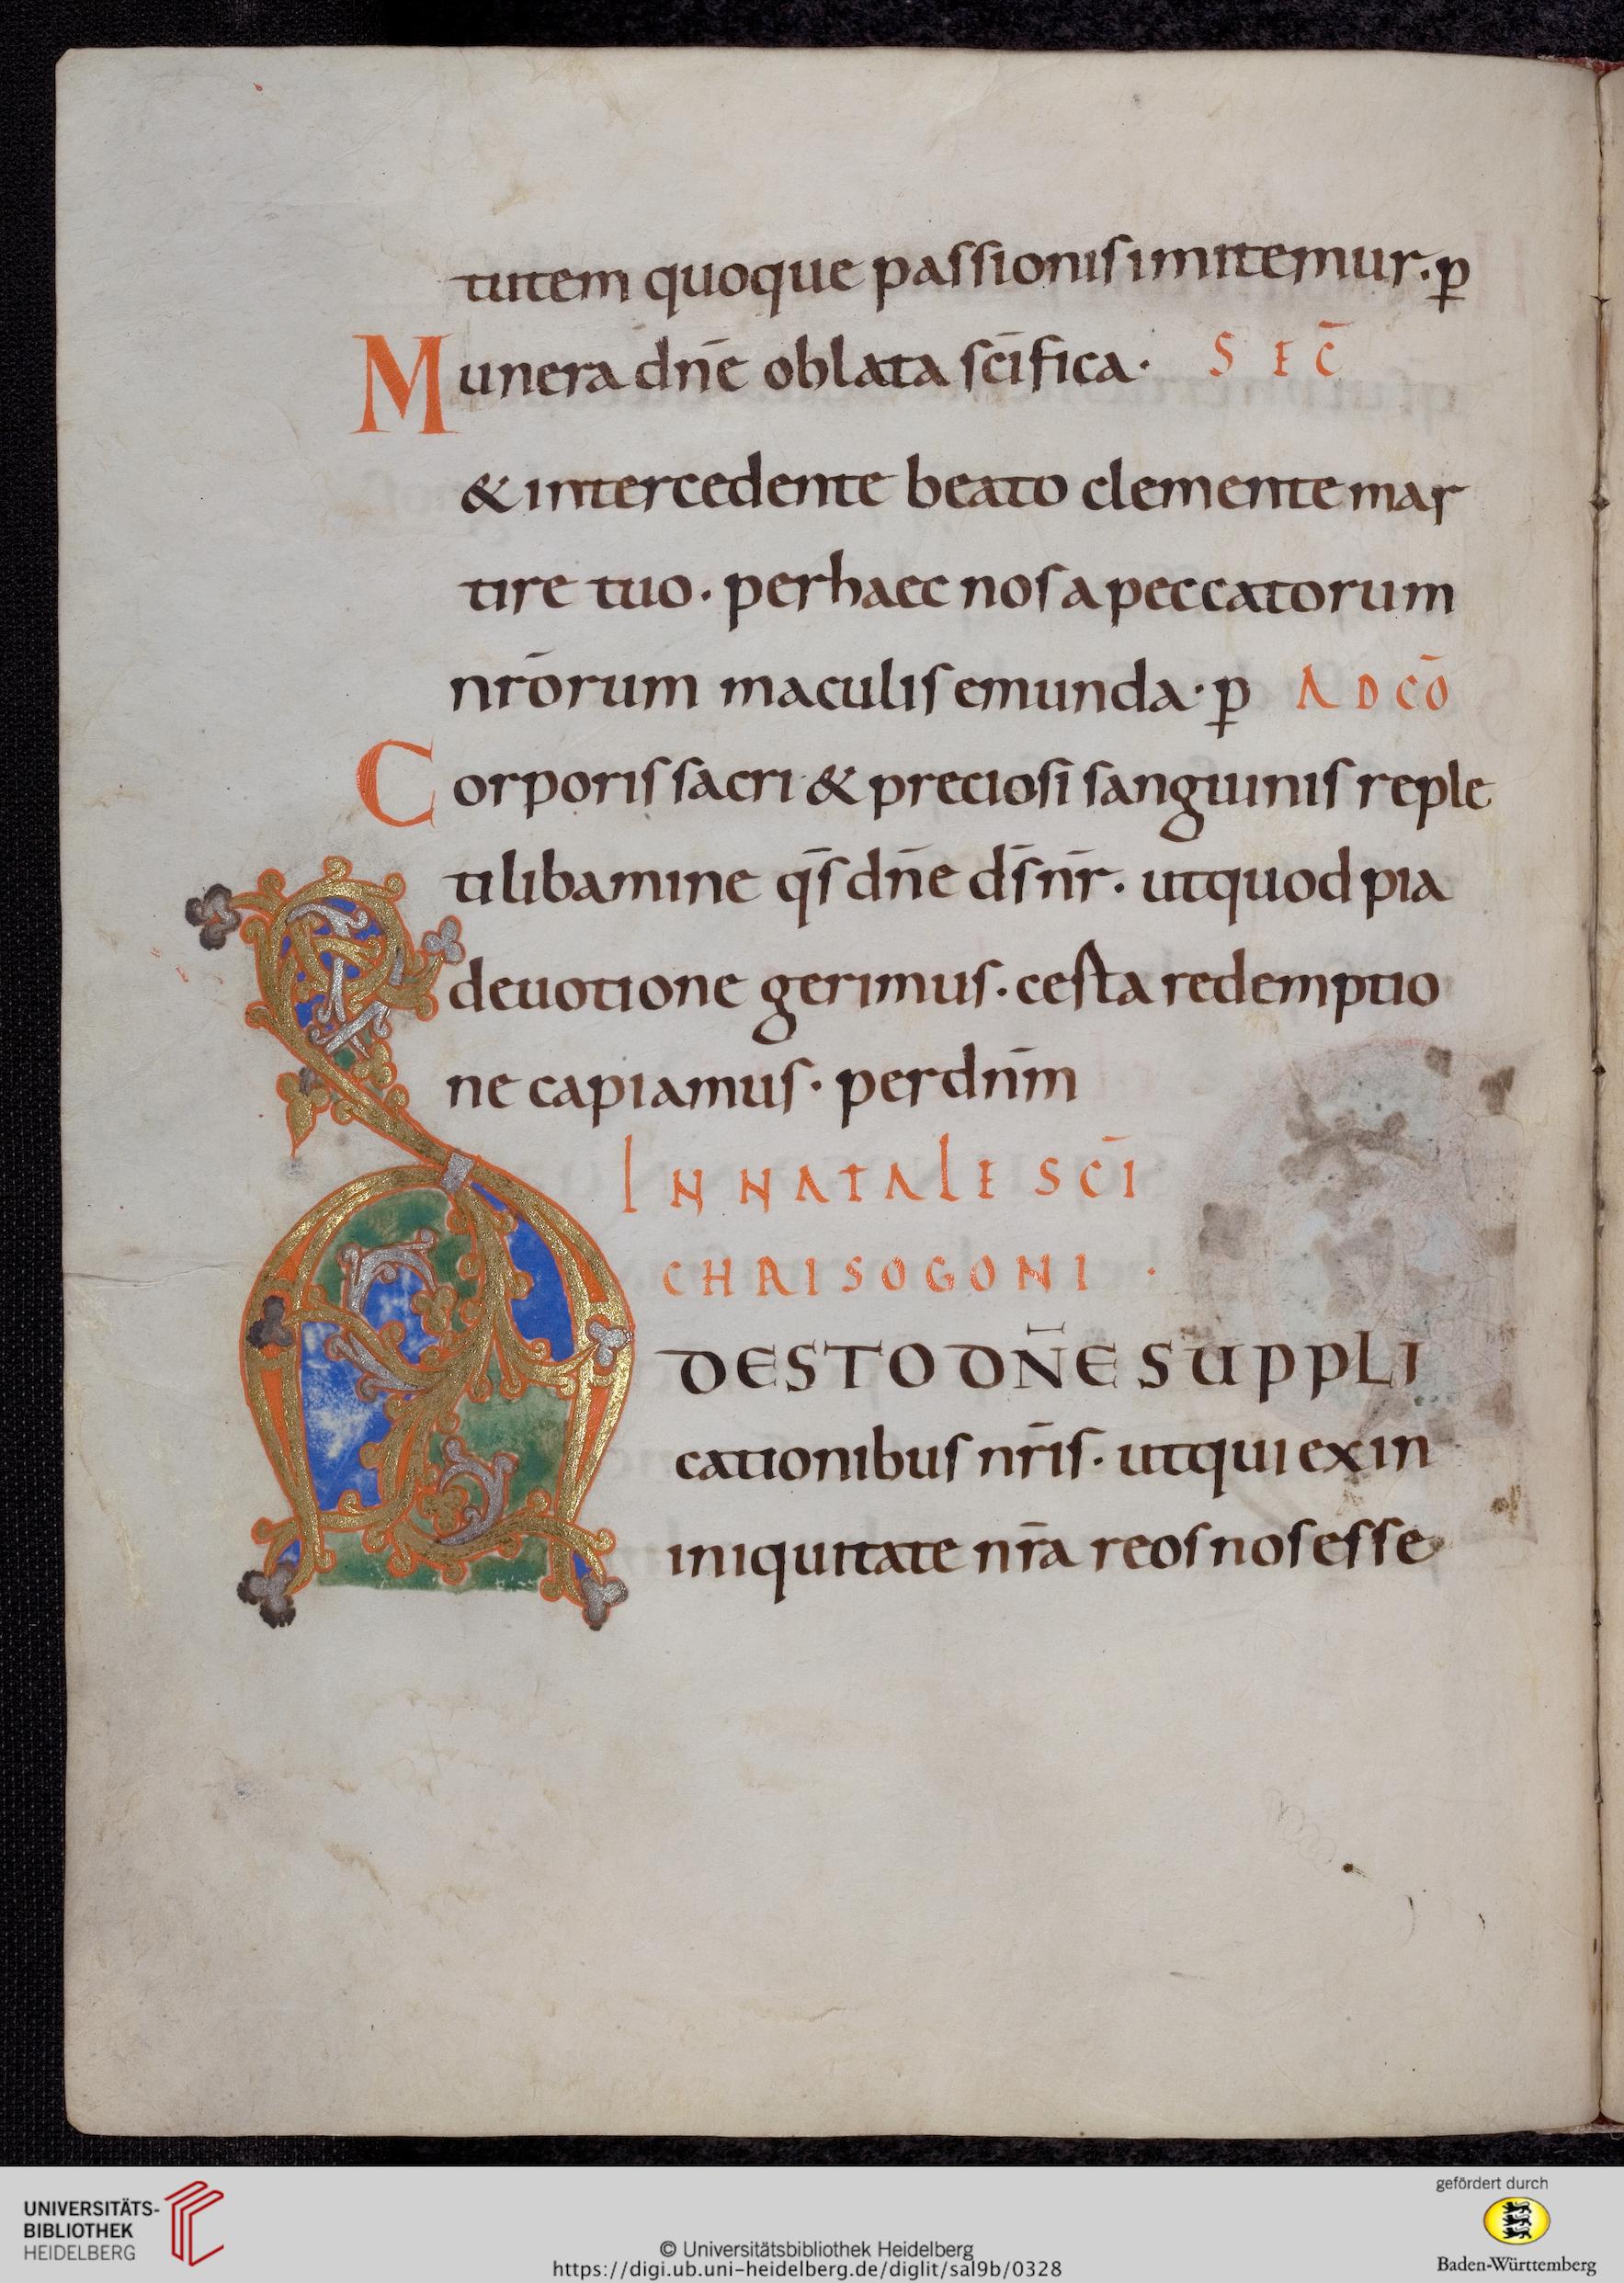 tutem quoque passionis imitemur. p̄
Munera dn̄e oblata sc̄ifica· SEC̄
& intercedente beato clemente mar
tire tuo. per haec nos a peccatorum
nr̄orum maculis emunda· p̄ AD CŌ
Corporis sacri & preciosi sanguinis reple
ti libamine qs̄ dn̄e ds̄ nr̄. ut quod pia
deuotione gerimus. cesta redemptio
ne capiamus· per dnm̄
IN NATALE SC̄I
CHRISOGONI ·
ADESTO DN̄E SUPPLI
cationibus nr̄is. ut qui ex in
iniquitate nr̄a reos nos esse
UNIVERSITÄTS-
BIBLIOTHEK
HEIDELBERG
© Universitätsbibliothek Heidelberg
https://digi.ub.uni-heidelberg.de/diglit/sal9b/0328
gefördert durch
Baden-Württemberg